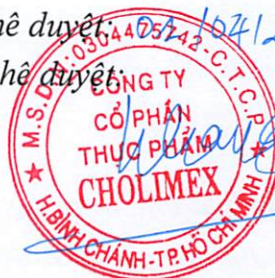 hê duyệt:
hê duyệt:
M.S.D.N:0304475742-C.T.C.P
CÔNG TY
CỔ PHẦN
THỰC PHẨM
CHOLIMEX
H.BÌNH CHÁNH-T.P.HỒ CHÍ MINH